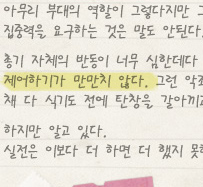 아무리 부대의 역할이 그렇다지만 그
집중력을 요구하는 것은 말도 안된다.
총기 자체의 반동이 너무 심한데다
제어하기가 만만치 않다. 그런 악조
채 다 식기도 전에 탄창을 갈아끼고
하지만 알고 있다.
실전은 이보다 더 하면 더 했지 못하